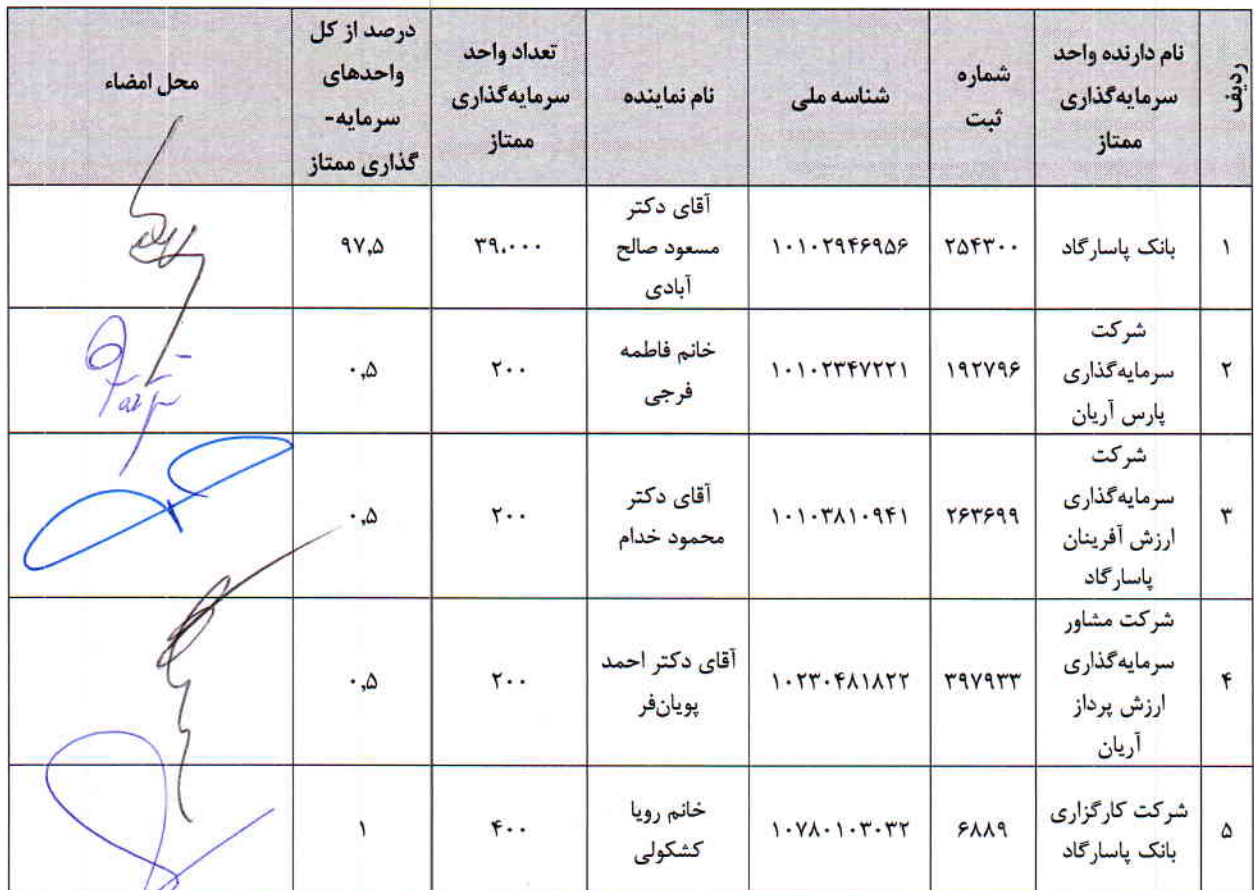 ردیف
نام دارنده واحد
سرمایه‌گذاری
ممتاز
شماره
ثبت
شناسه ملی
نام نماینده
تعداد واحد
سرمایه‌گذاری
ممتاز
درصد از کل
واحدهای
سرمایه-
گذاری ممتاز
محل امضاء
۱
بانک پاسارگاد
۲۵۴۳۰۰
۱۰۱۰۲۹۴۶۹۵۶
آقای دکتر
مسعود صالح
آبادی
۳۹،۰۰۰
۹۷,۵
۲
شرکت
سرمایه‌گذاری
پارس آریان
۱۹۲۷۹۶
۱۰۱۰۲۳۴۷۲۲۱
خانم فاطمه
فرجی
۲۰۰
۰,۵
۳
شرکت
سرمایه‌گذاری
ارزش آفرینان
پاسارگاد
۲۶۳۶۹۹
۱۰۱۰۳۸۱۰۹۴۱
آقای دکتر
محمود خدام
۲۰۰
۰,۵
۴
شرکت مشاور
سرمایه‌گذاری
ارزش پرداز
آریان
۳۹۷۹۳۳
۱۰۲۳۰۴۸۱۸۲۲
آقای دکتر احمد
پویان‌فر
۲۰۰
۰,۵
۵
شرکت کارگزاری
بانک پاسارگاد
۶۸۸۹
۱۰۷۸۰۱۰۳۰۳۲
خانم رویا
کشکولی
۴۰۰
۱